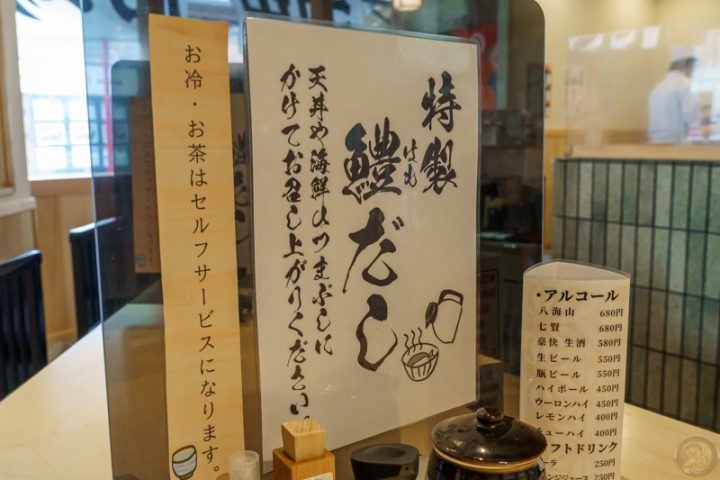 お冷・お茶はセルフサービスになります。
特製
鱧だし
はも
天丼や海鮮ひつまぶしに
かけてお召し上がりください。
・アルコール
八海山 680円
七賢 680円
豪快 生酒 580円
生ビール 550円
瓶ビール 550円
ハイボール 450円
ウーロンハイ 450円
レモンハイ 400円
チューハイ 400円
フトドリンク
ーラ 250円
ンジジュース 250円